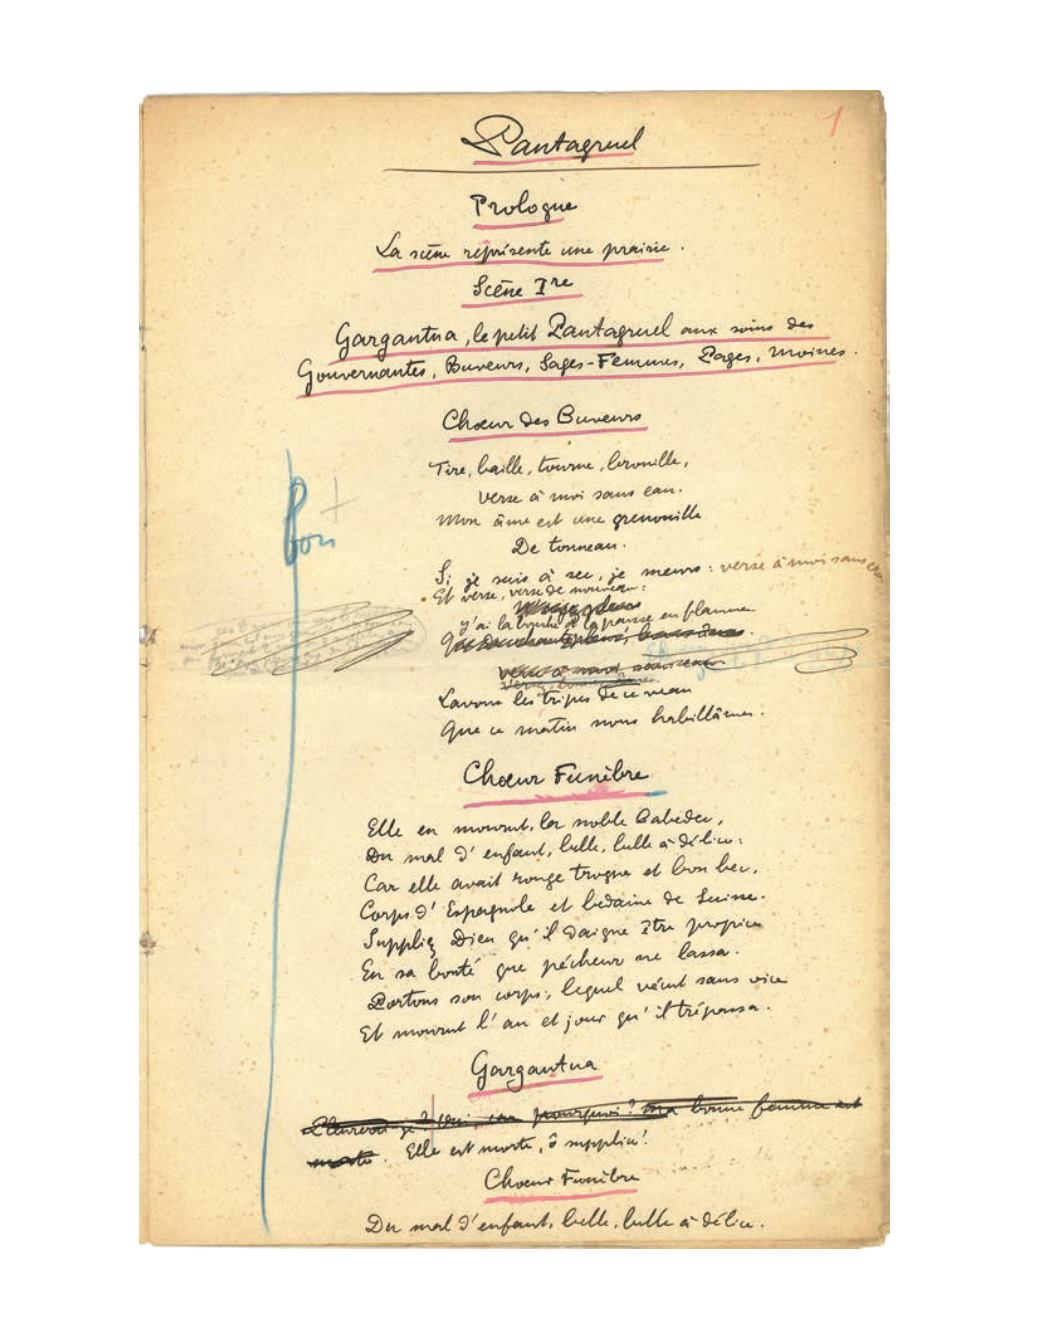 1
Pantagruel
Prologue
La scène représente une prairie.
Scène Ire
Gargantua, le petit Pantagruel aux soins des
Gouvernantes, Buveurs, Sages-Femmes, Pages, Moines.
Chœur des Buveurs
Tire, baille, tourne, brouille,
Verse à moi sans eau.
Mon âme est une grenouille
De tonneau.
Bon
Si je suis à sec, je meurs: verse à moi sans eau
Et verse, verse de nouveau:
J'ai la bouche et la panse en flamme
Lavons les tripes de ce veau
Que ce matin nous habillâmes.
Chœur Funèbre
Elle en mourut, la noble Badebec,
Du mal d'enfant, belle, belle à délice:
Car elle avait rouge trogne et bon bec,
Corps d'Espagnole et bedaine de Suisse.
Suppliez Dieu qu'il daigne être propice
En sa bonté que pécheur ne lassa.
Portons son corps, lequel vécut sans vice
Et mourut l'an et jour qu'il trépassa.
Gargantua
Pleurerai-je? Oui car pourquoi? Ma bonne femme est
morte. Elle est morte, ô supplice!
Chœur Funèbre
Du mal d'enfant, belle, belle à délice.